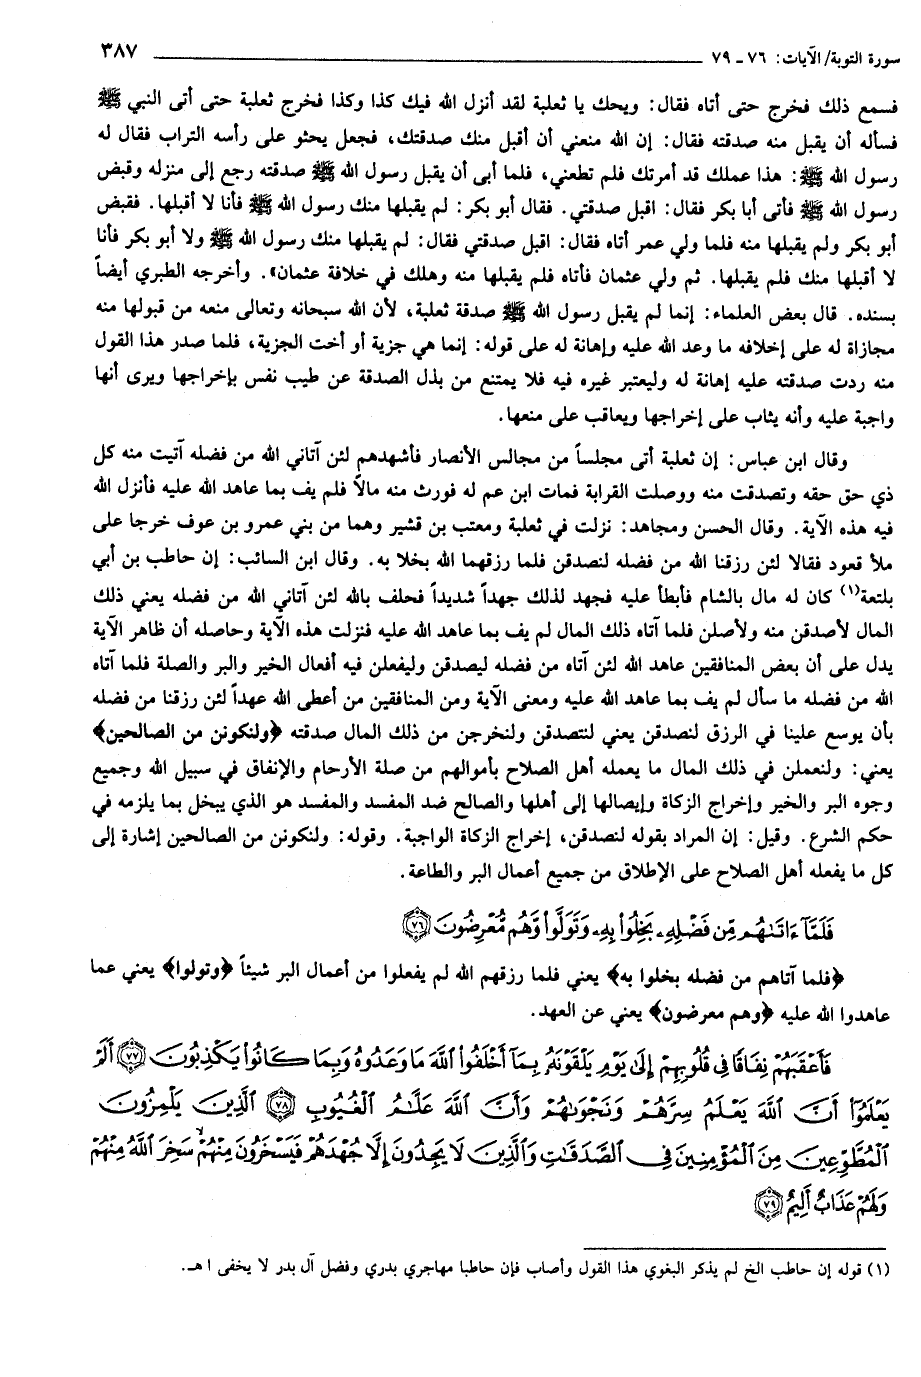 سورة التوبة/ الآيات: ٧٦ ـ ٧٩ ٣٨٧
فسمع ذلك فخرج حتى أتاه فقال: ويحك يا ثعلبة لقد أنزل الله فيك كذا وكذا فخرج ثعلبة حتى أتى النبي ﷺ
فسأله أن يقبل منه صدقته فقال: إن الله منعني أن أقبل منك صدقتك، فجعل يحثو على رأسه التراب فقال له
رسول الله ﷺ: هذا عملك قد أمرتك فلم تطعني، فلما أبى أن يقبل رسول الله ﷺ صدقته رجع إلى منزله وقبض
رسول الله ﷺ فأتى أبا بكر فقال: اقبل صدقتي. فقال أبو بكر: لم يقبلها منك رسول الله ﷺ فأنا لا أقبلها. فقبض
أبو بكر ولم يقبلها منه فلما ولي عمر أتاه فقال: اقبل صدقتي فقال: لم يقبلها منك رسول الله ﷺ ولا أبو بكر فأنا
لا أقبلها منك فلم يقبلها. ثم ولي عثمان فأتاه فلم يقبلها منه وهلك في خلافة عثمان». وأخرجه الطبري أيضاً
بسنده. قال بعض العلماء: إنما لم يقبل رسول الله ﷺ صدقة ثعلبة، لأن الله سبحانه وتعالى منعه من قبولها منه
مجازاة له على إخلافه ما وعد الله عليه وإهانة له على قوله: إنما هي جزية أو أخت الجزية، فلما صدر هذا القول
منه ردت صدقته عليه إهانة له وليعتبر غيره فيه فلا يمتنع من بذل الصدقة عن طيب نفس بإخراجها ويرى أنها
واجبة عليه وأنه يثاب على إخراجها ويعاقب على منعها.
وقال ابن عباس: إن ثعلبة أتى مجلساً من مجالس الأنصار فأشهدهم لئن آتاني الله من فضله آتيت منه كل
ذي حق حقه وتصدقت منه ووصلت القرابة فمات ابن عم له فورث منه مالاً فلم يف بما عاهد الله عليه فأنزل الله
فيه هذه الآية. وقال الحسن ومجاهد: نزلت في ثعلبة ومعتب بن قشير وهما من بني عمرو بن عوف خرجا على
ملأ قعود فقالا لئن رزقنا الله من فضله لنصدقن فلما رزقهما الله بخلا به. وقال ابن السائب: إن حاطب بن أبي
بلتعة(١) كان له مال بالشام فأبطأ عليه فجهد لذلك جهداً شديداً فحلف بالله لئن آتاني الله من فضله يعني ذلك
المال لأصدقن منه ولأصلن فلما آتاه ذلك المال لم يف بما عاهد الله عليه فنزلت هذه الآية وحاصله أن ظاهر الآية
يدل على أن بعض المنافقين عاهد الله لئن آتاه من فضله ليصدقن وليفعلن فيه أفعال الخير والبر والصلة فلما آتاه
الله من فضله ما سأل لم يف بما عاهد الله عليه ومعنى الآية ومن المنافقين من أعطى الله عهداً لئن رزقنا من فضله
بأن يوسع علينا في الرزق لنصدقن يعني لنتصدقن ولنخرجن من ذلك المال صدقته ﴿ولنكونن من الصالحين﴾
يعني: ولنعملن في ذلك المال ما يعمله أهل الصلاح بأموالهم من صلة الأرحام والإنفاق في سبيل الله وجميع
وجوه البر والخير وإخراج الزكاة وإيصالها إلى أهلها والصالح ضد المفسد والمفسد هو الذي يبخل بما يلزمه في
حكم الشرع. وقيل: إن المراد بقوله لنصدقن، إخراج الزكاة الواجبة. وقوله: ولنكونن من الصالحين إشارة إلى
كل ما يفعله أهل الصلاح على الإطلاق من جميع أعمال البر والطاعة.
فَلَمَّآ ءَاتَىٰهُم مِّن فَضْلِهِۦ بَخِلُوا۟ بِهِۦ وَتَوَلَّوا۟ وَّهُم مُّعْرِضُونَ ﴿٧٦﴾
﴿فلما آتاهم من فضله بخلوا به﴾ يعني فلما رزقهم الله لم يفعلوا من أعمال البر شيئاً ﴿وتولوا﴾ يعني عما
عاهدوا الله عليه ﴿وهم معرضون﴾ يعني عن العهد.
فَأَعْقَبَهُمْ نِفَاقًا فِى قُلُوبِهِمْ إِلَىٰ يَوْمِ يَلْقَوْنَهُۥ بِمَآ أَخْلَفُوا۟ ٱللَّهَ مَا وَعَدُوهُ وَبِمَا كَانُوا۟ يَكْذِبُونَ ﴿٧٧﴾ أَلَمْ
يَعْلَمُوٓا۟ أَنَّ ٱللَّهَ يَعْلَمُ سِرَّهُمْ وَنَجْوَىٰهُمْ وَأَنَّ ٱللَّهَ عَلَّٰمُ ٱلْغُيُوبِ ﴿٧٨﴾ ٱلَّذِينَ يَلْمِزُونَ
ٱلْمُطَّوِّعِينَ مِنَ ٱلْمُؤْمِنِينَ فِى ٱلصَّدَقَٰتِ وَٱلَّذِينَ لَا يَجِدُونَ إِلَّا جُهْدَهُمْ فَيَسْخَرُونَ مِنْهُمْ ۙ سَخِرَ ٱللَّهُ مِنْهُمْ
وَلَهُمْ عَذَابٌ أَلِيمٌ ﴿٧٩﴾
(١) قوله إن حاطب الخ لم يذكر البغوي هذا القول وأصاب فإن حاطبا مهاجري بدري وفضل آل بدر لا يخفى ا هـ.